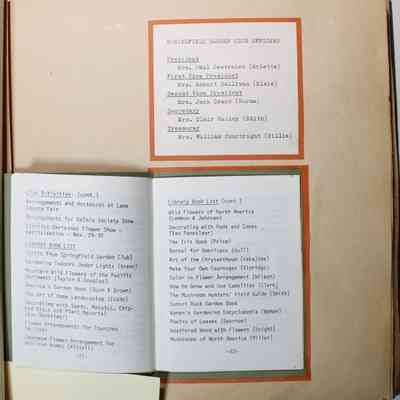 SPRINGFIELD GARDEN CLUB OFFICERS
President
Mrs. (Arlette)
First Vice President
Mrs. Robert Sullivan (Elsie)
Second Vice President
Mrs. Jack Grant (Norma)
Secretary
Mrs. Clair Hailey (Edith)
Treasurer
Mrs. William Courtright (Billie)
Club Activities (cont.)
Arrangements and Horticult at Lane
County Fair
Arrangements for Dahlia Society Show
District Christmas Flower Show -
Fertilization - Nov. 29-30
Library Book List
Plants from Springfield Garden Club
Gardening Indoors Under Lights
Mountain Wild Flowers of the Pacific
Northwest (Taylor & Douglas)
America's Garden Book (Bush & Brown)
The Art of Home Landscaping
Decorating with Seeds, Mosaics, Chip-
ped Glass and Plant Materials
Flower Arrangements for Churches
Japanese Flower Arrangement for
Library Book List (cont.)
Wild Flowers of North America
(Lemmon & Johnson)
Decorating with Pods and Cones
(Van Rensselaer)
The Iris Book (Price)
Bonsai for Americans (Hull)
Art of the Chrysanthemum
Make Your Own Corsages (Eldridge)
Color in Flower Arrangement (Wilson)
How to Grow and Use Camellias
The Mushroom Hunters' Field Guide (Smith)
Sunset Rock Garden Book
Gardening Encyclopedia
Poetry of Leaves (Sparrow)
Weathered Wood with Flowers (Knight)
Mushrooms of North America (Miller)